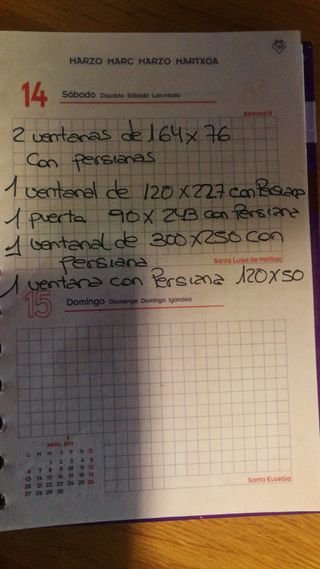 MARZO MARC MARZO MARTXOA
14 Sábado Dissabte Sábado Larunbata
Semana 11
2 ventanas de 164x76
con persianas
1 ventanal de 120x227 con Persiana
1 puerta 90x243 con Persiana
1 ventanal de 300x250 con
persiana
Santa Luisa de Marillac
1 ventana con Persiana 120x50
15 Domingo Diumenge Domingo Igandea
ABRIL
L M M J V S D
1 2 3 4 5
6 7 8 9 10 11 12
13 14 15 16 17 18 19
20 21 22 23 24 25 26
27 28 29 30
Santa Eusebia